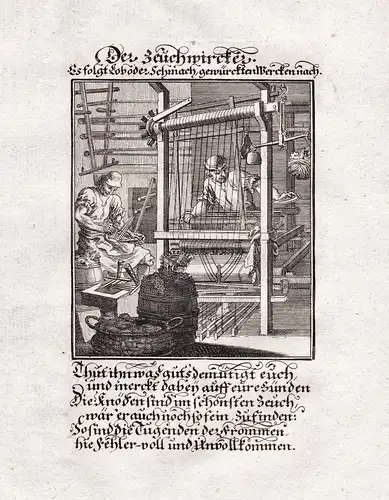 Der Zeüchwircker.
Es folgt Lob oder Schmach, gewürckten Wercken nach.
Thut ihr was guts demütigt euch,
und merckt dabeÿ auff eure Sünden
Die Knoden sind im schönsten Zeuch,
wär er auch noch so fein, zu finden:
So sind die Tugenden der Frommen,
hie Fehler-voll und Unvollkommen.